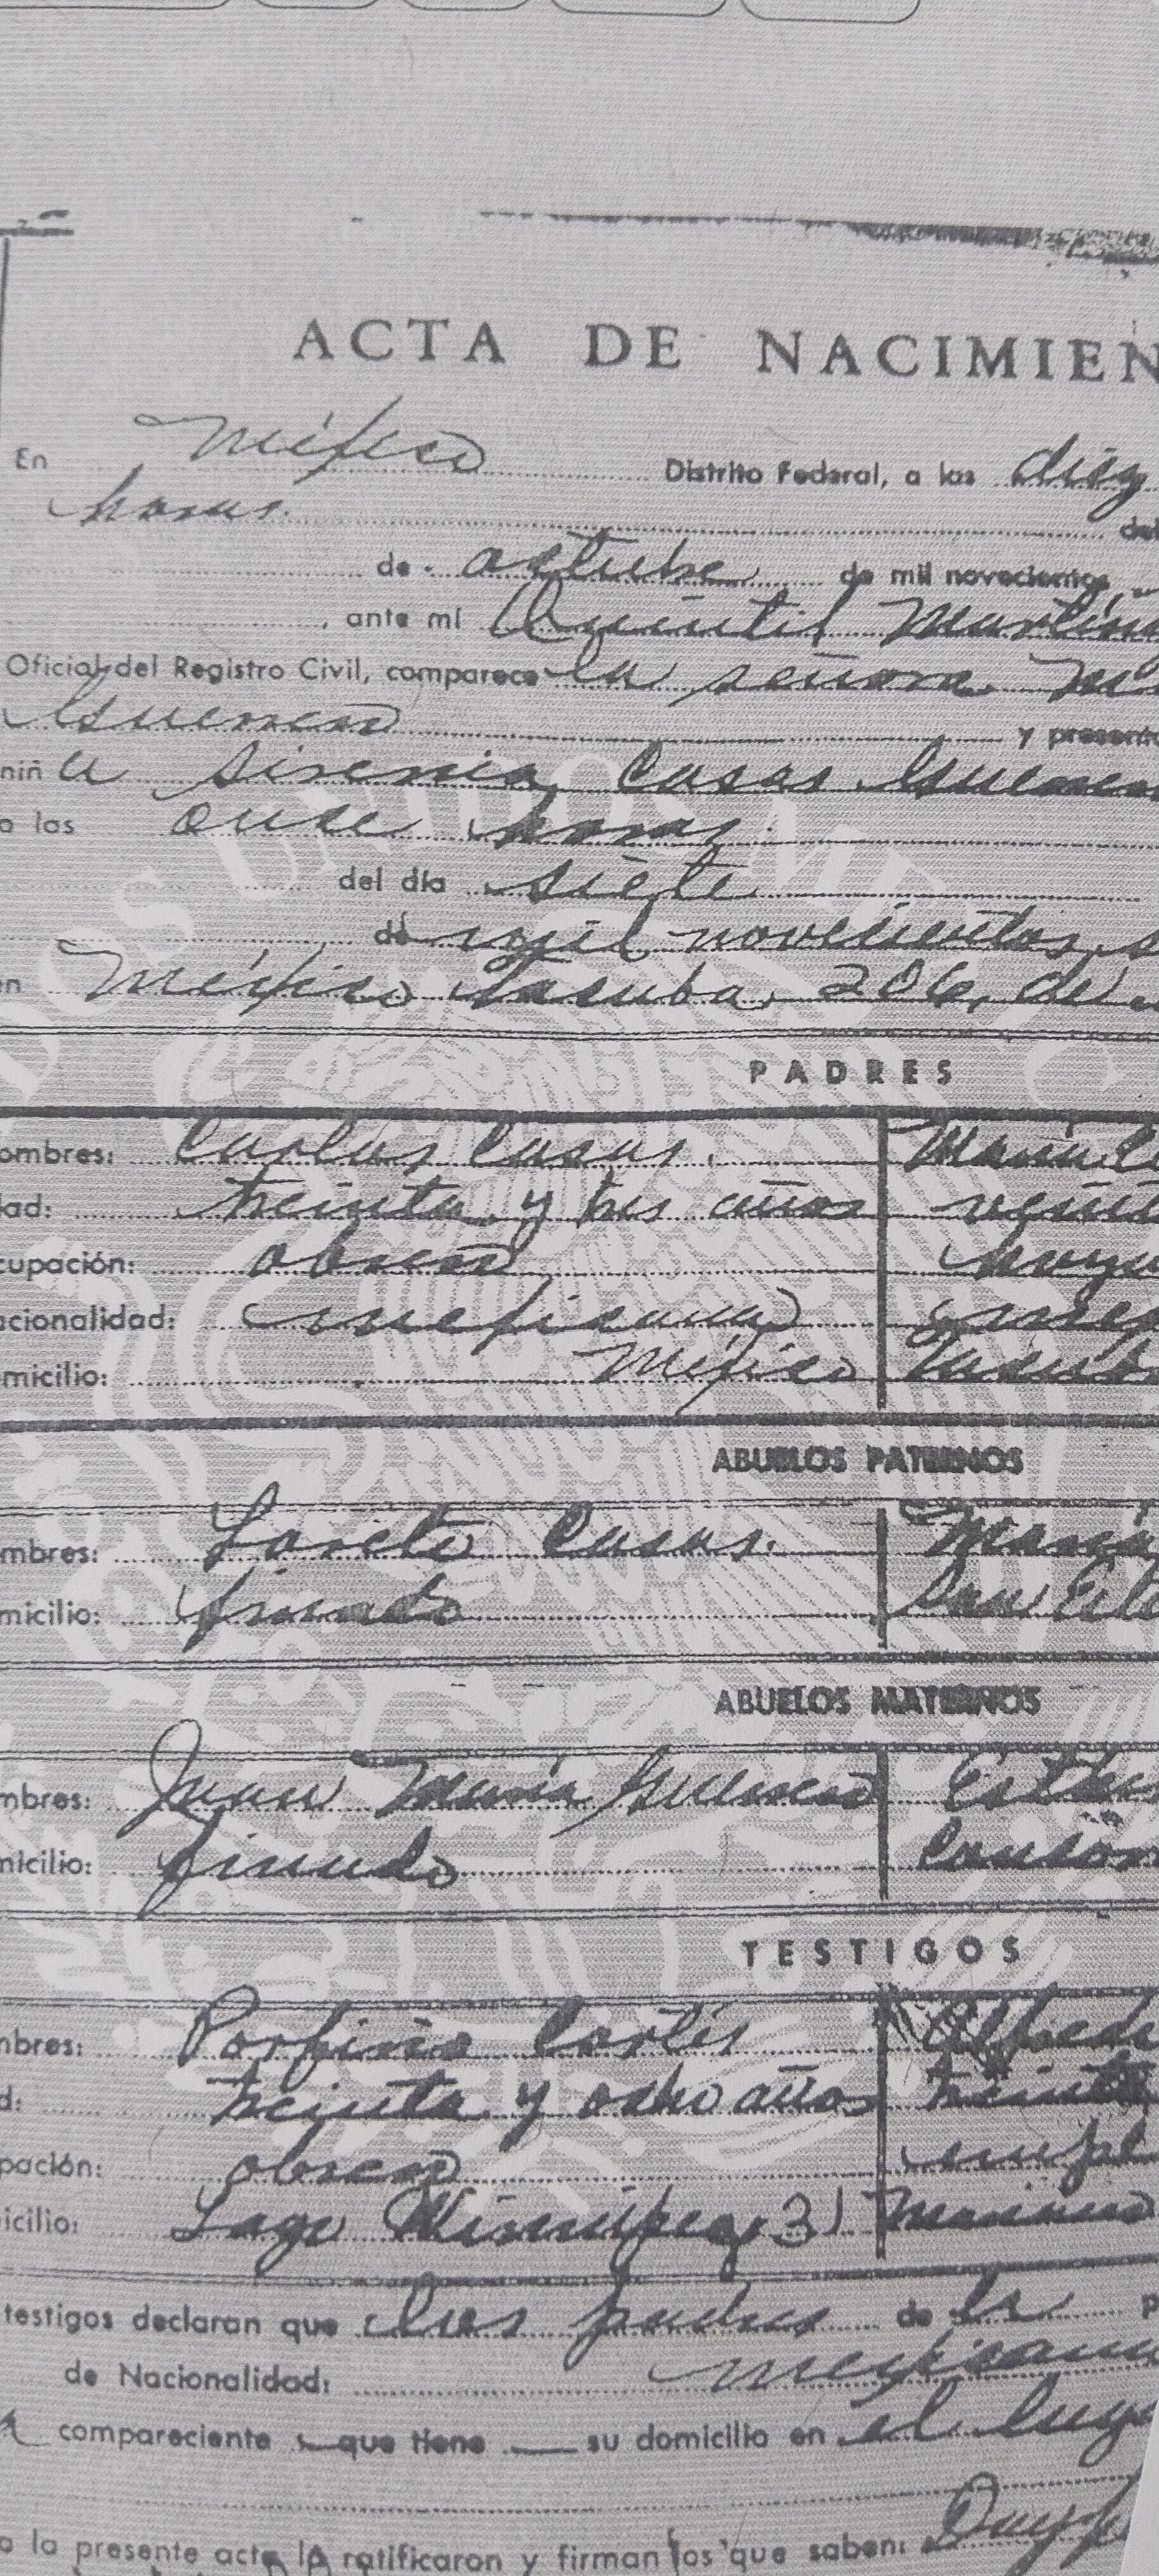 ACTA DE NACIMIEN
En México Distrito Federal, a las diez
horas. del
de octubre de mil novecientos
, ante mí Quintil Martín
Oficial del Registro Civil, comparece la señora
Guerrero y presenta
niña Sirenia Casas Guerrero
a las once horas.
del día siete
de mil novecientos
en México Tacuba 206, de
PADRES
ombres: Carlos Casas. María
ad: treinta y tres años
cupación: obrero
acionalidad: mexicana
micilio: México Tacuba
ABUELOS PATERNOS
mbres: Loreto Casas. María
micilio: finado San
ABUELOS MATERNOS
mbres: Juan María Guerrero
micilio: finado
TESTIGOS
mbres: Porfirio Cortés Alfredo
d: treinta y ocho años treinta
pación: obrero empl
icilio: Lago Winnipeg 31
testigos declaran que los padres de la p
de Nacionalidad: mexicana
compareciente que tiene su domicilio en el luga
a la presente acta la ratificaron y firman los que saben: